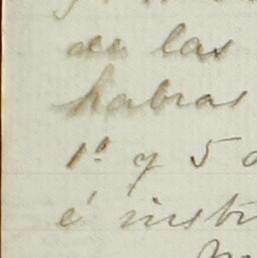 de las
habras
1º y 5
é instr